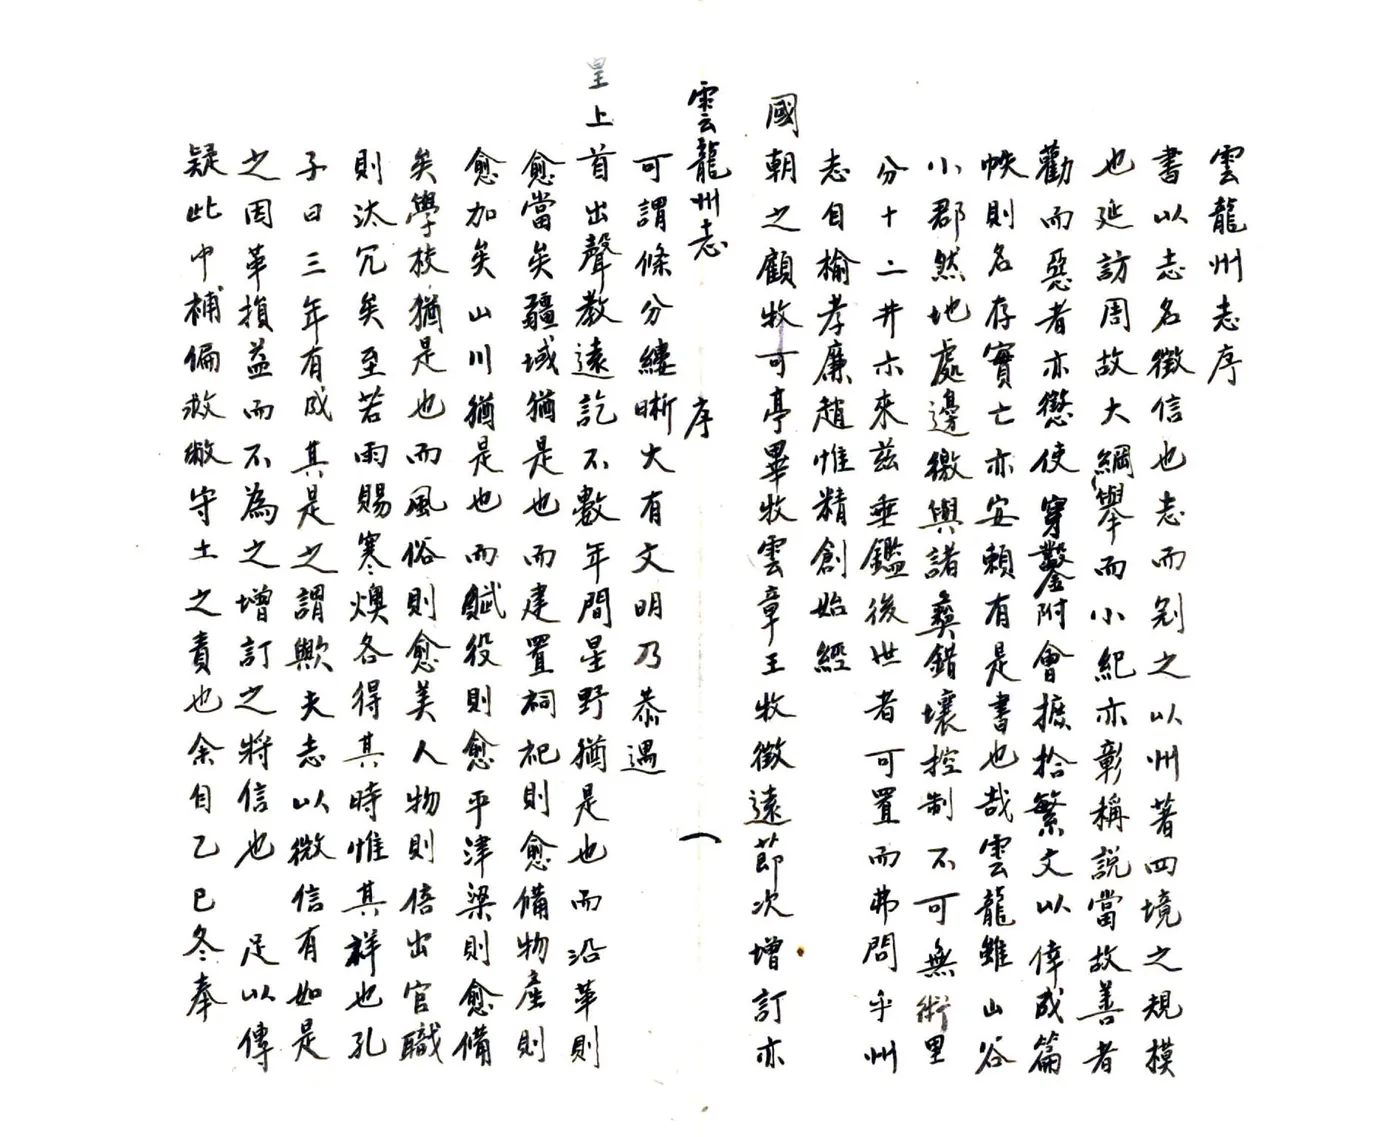 雲龍州志序
書以志名徵信也志而别之以州著四境之規模
也延訪周故大綱舉而小紀亦彰稱説當故善者
勸而惡者亦懲使穿鑿附會摭拾繁文以倖成篇
帙則名存實亡亦安賴有是書也哉雲龍雖山谷
小郡然地處邊徼與諸彝錯壤控制不可無術里
分十二井亦來兹垂鑑後世者可置而弗問乎州
志自榆孝廉趙惟精創始經
國朝之顧牧可亭畢牧雲章王牧徵遠節次增訂亦
雲龍州志 序 一
可謂條分縷晰大有文明乃恭遇
皇上首出聲教遠訖不數年間星野猶是也而沿革則
愈當矣疆域猶是也而建置祠祀則愈備物産則
愈加矣山川猶是也而賦役則愈平津梁則愈備
矣學校猶是也而風俗則愈美人物則倍出官職
則汰冗矣至若雨賜寒燠各得其時惟其祥也孔
子曰三年有成其是之謂歟夫志以徵信有如是
之因革損益而不為之增訂之將信也 足以傳
疑此中補偏救敝守土之責也余自乙巳冬奉